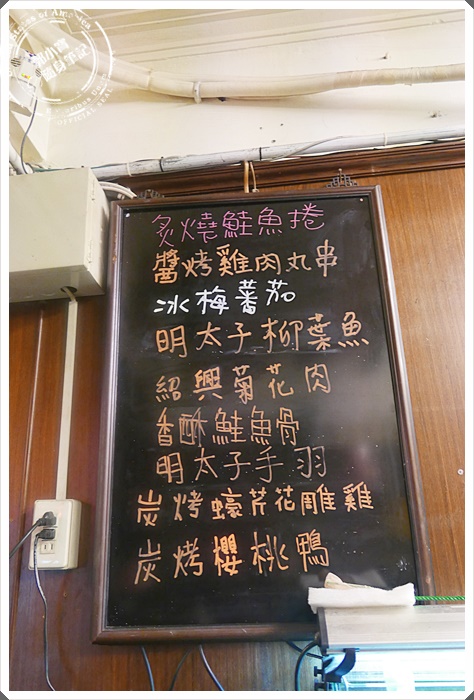 炙燒鮭魚捲
醬烤雞肉丸串
冰梅蕃茄
明太子柳葉魚
紹興菊花肉
香酥鮭魚骨
明太子手羽
炭烤蠔芹花雕雞
炭烤櫻桃鴨